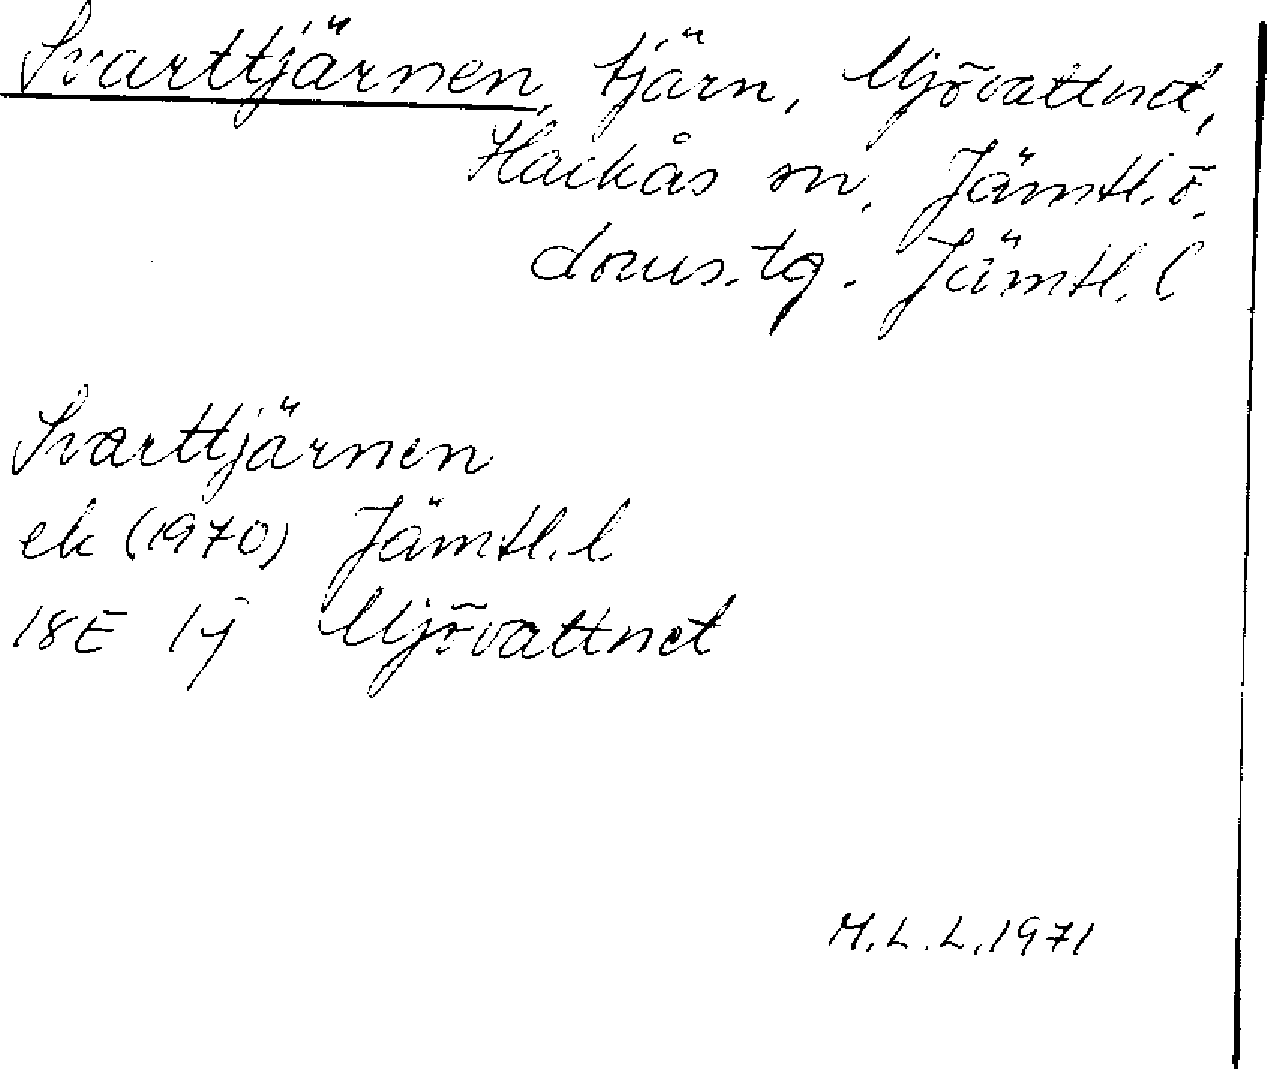 Svarttjärnen, tjärn, Mjövattnet,
Hackås sn, Jämtl. ö.
doms.tg. Jämtl. l
Svarttjärnen
ek (1970) Jämtl. l.
18E 1j Mjövattnet
M.L.L. 1971